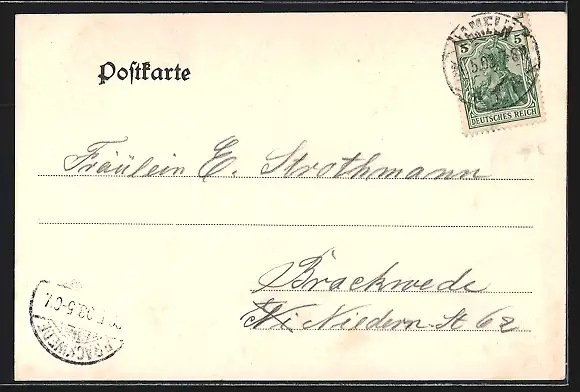 HAMELN
5 5
DEUTSCHES REICH
Postkarte
Fräulein E. Strothmann
Brackwede
Niedern St 62
BRACKWEDE